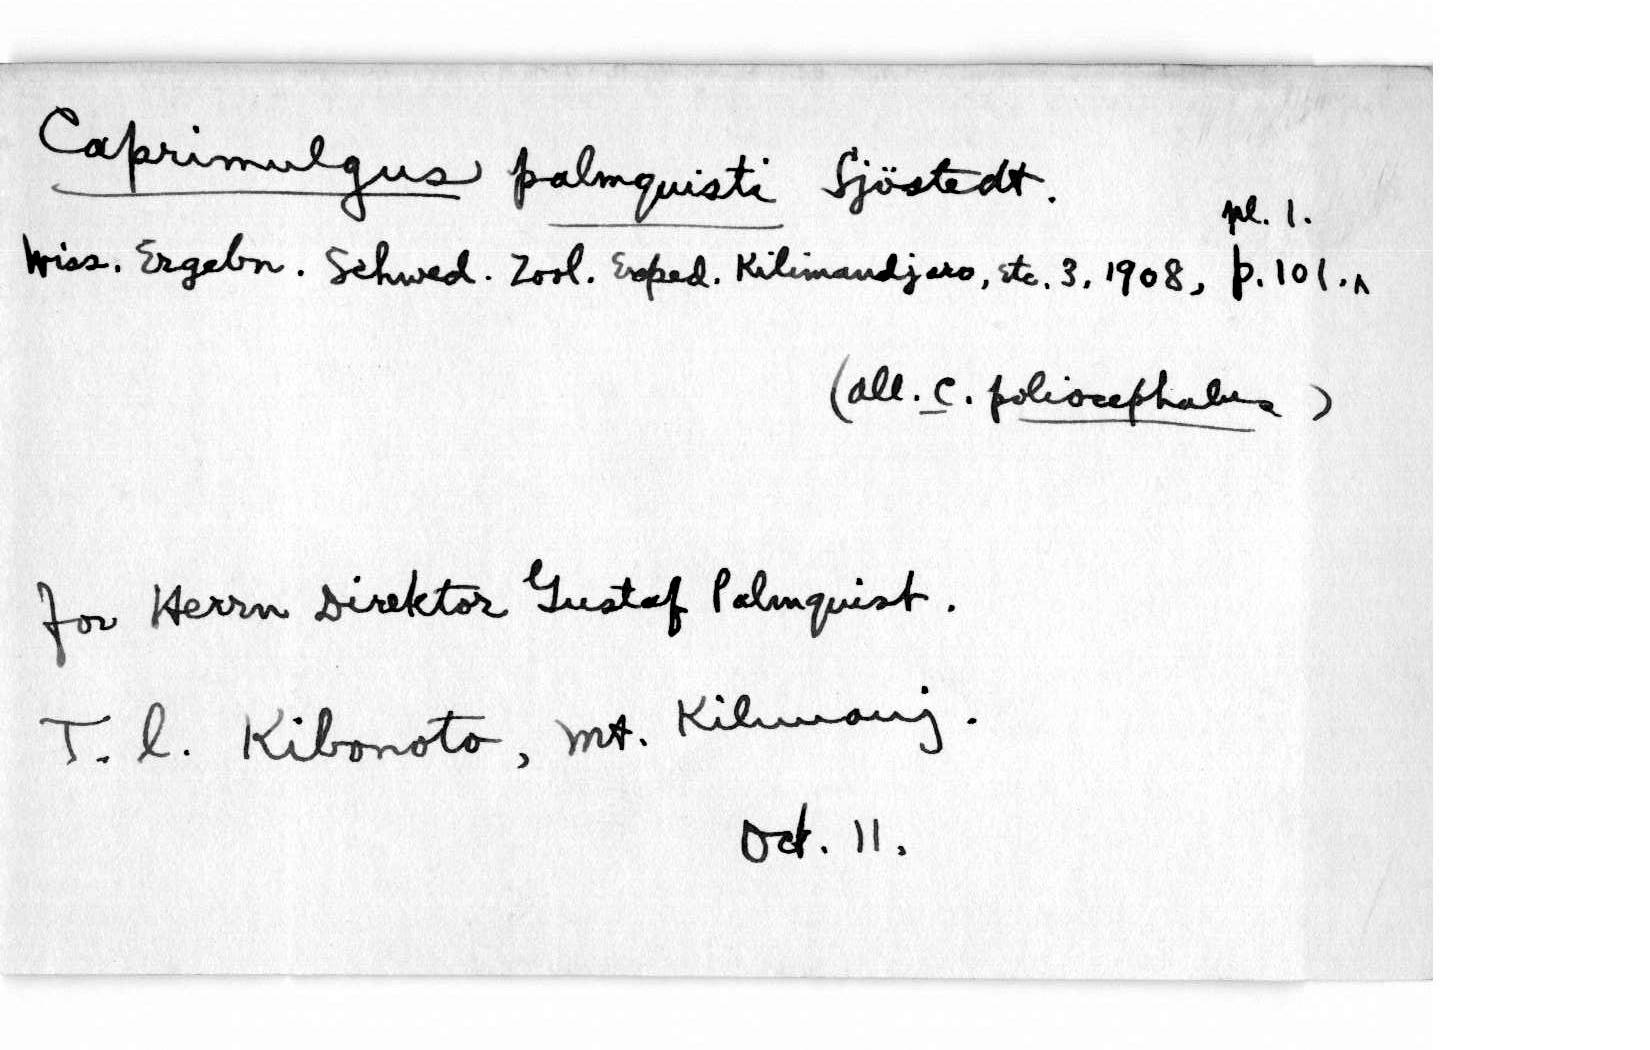 Caprimulgus palmquisti Sjöstedt.
pl. 1.
Wiss. Ergebn. Schwed. Zool. Exped. Kilimandjaro, etc. 3, 1908, p. 101.^
(all. C. poliocephalus)
for Herrn Direktor Gustaf Palmquist.
T. l. Kibonoto, Mt. Kilimanj.
Oct. 11.